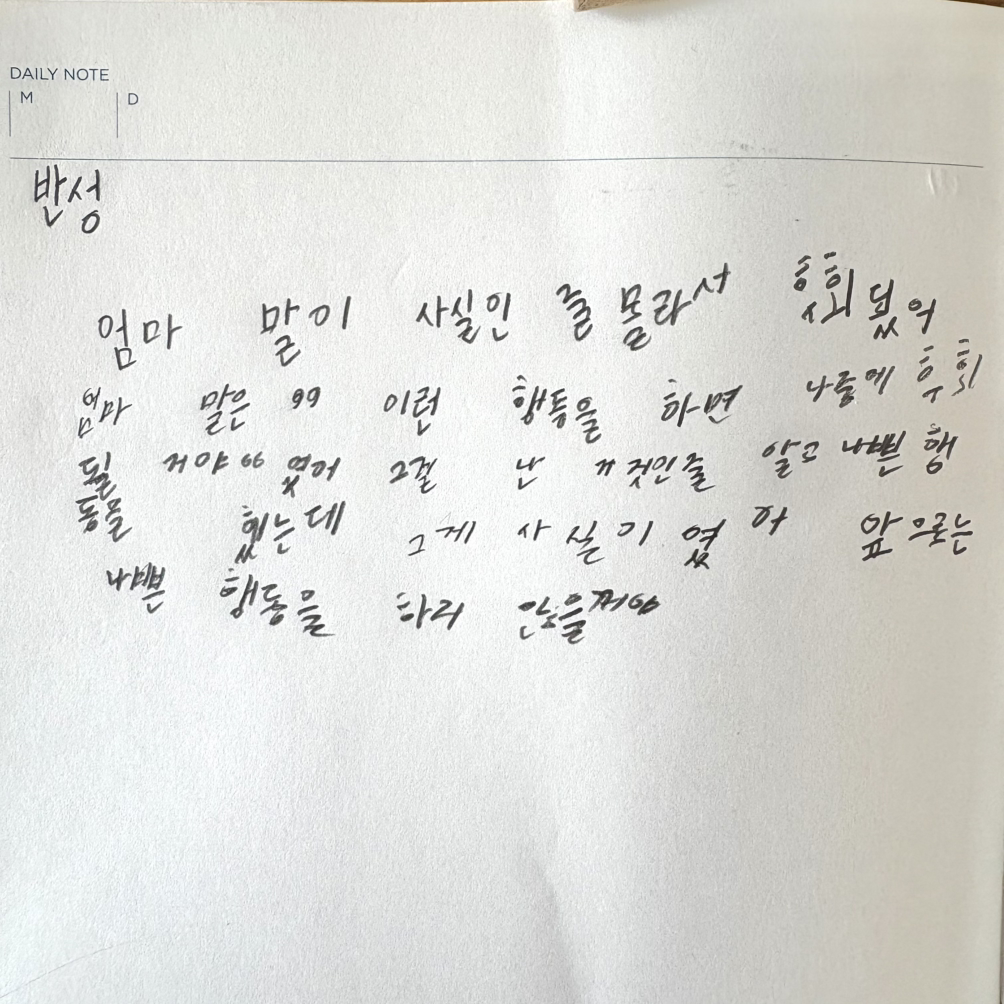 DAILY NOTE
M D
반성
엄마 말이 사실인 줄 몰라서 후회됬어
엄마 말은 " 이런 행동을 하면 나중에 후회
될 거야 " 였어 그걸 난 거짓인줄 알고 나쁜 행
동을 했는데 그게 사실이 였어 앞으로는
나쁜 행동을 하지 않을꺼야